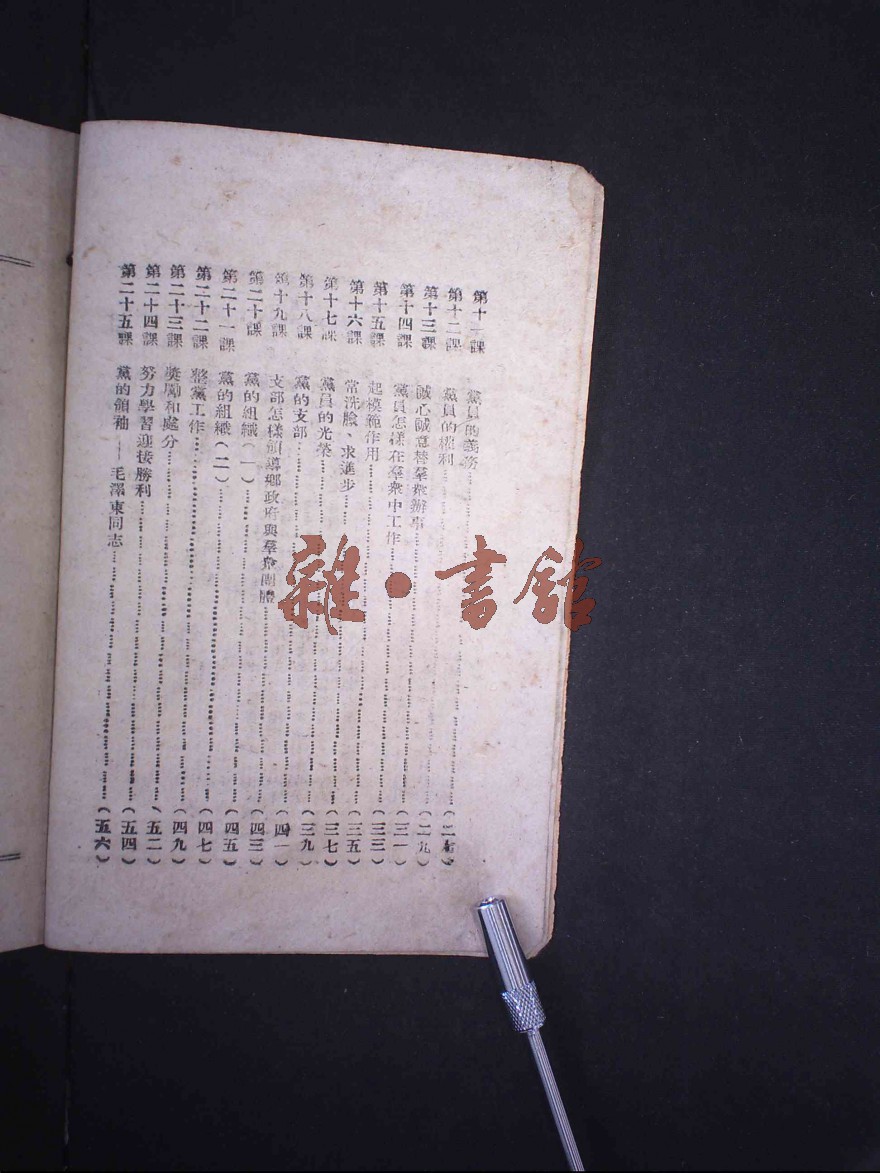 第十一課 黨員的義務……（二七）
第十二課 黨員的權利……（二九）
第十三課 誠心誠意替羣衆辦事……（三一）
第十四課 黨員怎樣在羣衆中工作……（三三）
第十五課 起模範作用……（三五）
第十六課 常洗臉、求進步……（三七）
第十七課 黨員的光榮……（三九）
第十八課 黨的支部……（四一）
第十九課 支部怎樣領導鄉政府與羣衆團體……（四三）
第二十課 黨的組織（一）……（四五）
第二十一課 黨的組織（二）……（四七）
第二十二課 整黨工作……（四九）
第二十三課 獎勵和處分……（五二）
第二十四課 努力學習迎接勝利……（五四）
第二十五課 黨的領袖——毛澤東同志……（五六）
雜·書館